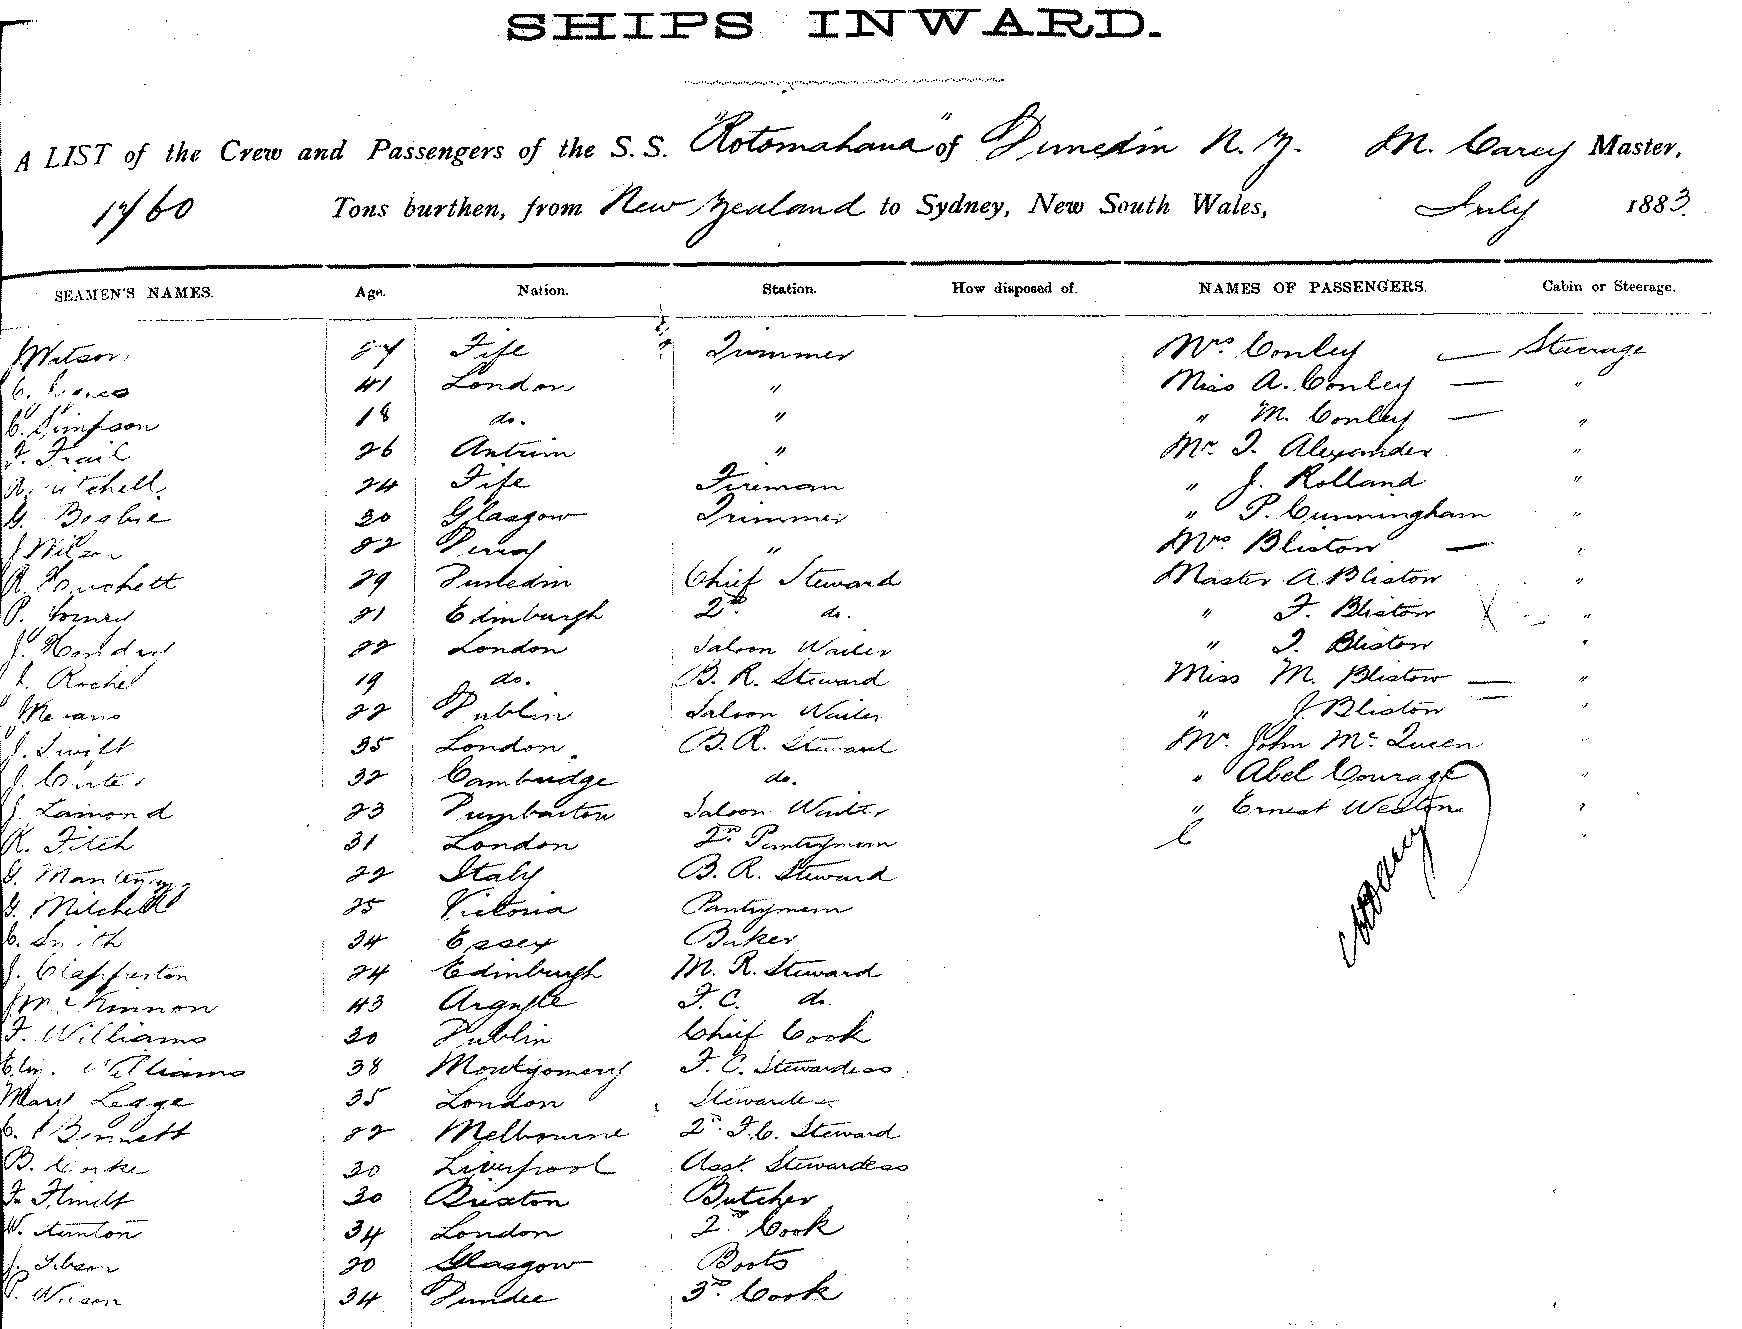 SHIPS INWARD.
A LIST of the Crew and Passengers of the S.S. "Rotomahana" of Dunedin N.Z. M. Carey Master,
1760 Tons burthen, from New Zealand to Sydney, New South Wales, July 1883.
SEAMEN'S NAMES. Age. Nation. Station. How disposed of. NAMES OF PASSENGERS. Cabin or Steerage.
Fife Trimmer Mrs Conley — Steerage
41 London " Miss A. Conley — "
C. Simpson 18 do. " " M. Conley — "
Trail 26 Antrim " Mr. T. Alexander "
24 Fife Fireman " J. Rolland "
G. Begbie 30 Glasgow Trimmer " P. Cunningham "
J Wilson " Mrs Bliston — "
29 Dunedin Chief Steward Master A Bliston "
P. 21 Edinburgh 2nd do. " F. Bliston "
J. 22 London Saloon Waiter " T. Bliston "
Roche 19 do. B. R. Steward Miss M. Bliston — "
22 Dublin Saloon Waiter " J. Bliston — "
J. Swift 35 London B. R. Steward Mr. John Mc Queen "
J. 32 Cambridge do. " Abel Courage "
J. Lamond 23 Dumbarton Saloon Waiter " Ernest Weston "
R. Fitch 31 London 2nd Pantryman "
G. 22 Italy B. R. Steward
G. Mitchell 25 Victoria Pantryman
C. Smith 34 Essex Baker
J. Clapperton 24 Edinburgh M. R. Steward
J Mc Kinnon 43 Argyle F. C. do.
F. Williams 30 Dublin Chief Cook
Williams 38 Montgomery F. C. Stewardess
Mary Legge 35 London Stewardess
Bennett 22 Melbourne 2nd F.C. Steward
B. 30 Liverpool Asst. Stewardess
30 Brixton Butcher
W. 34 London 2nd Cook
J. 20 Glasgow Boots
P. Wilson 34 Dundee 3rd Cook